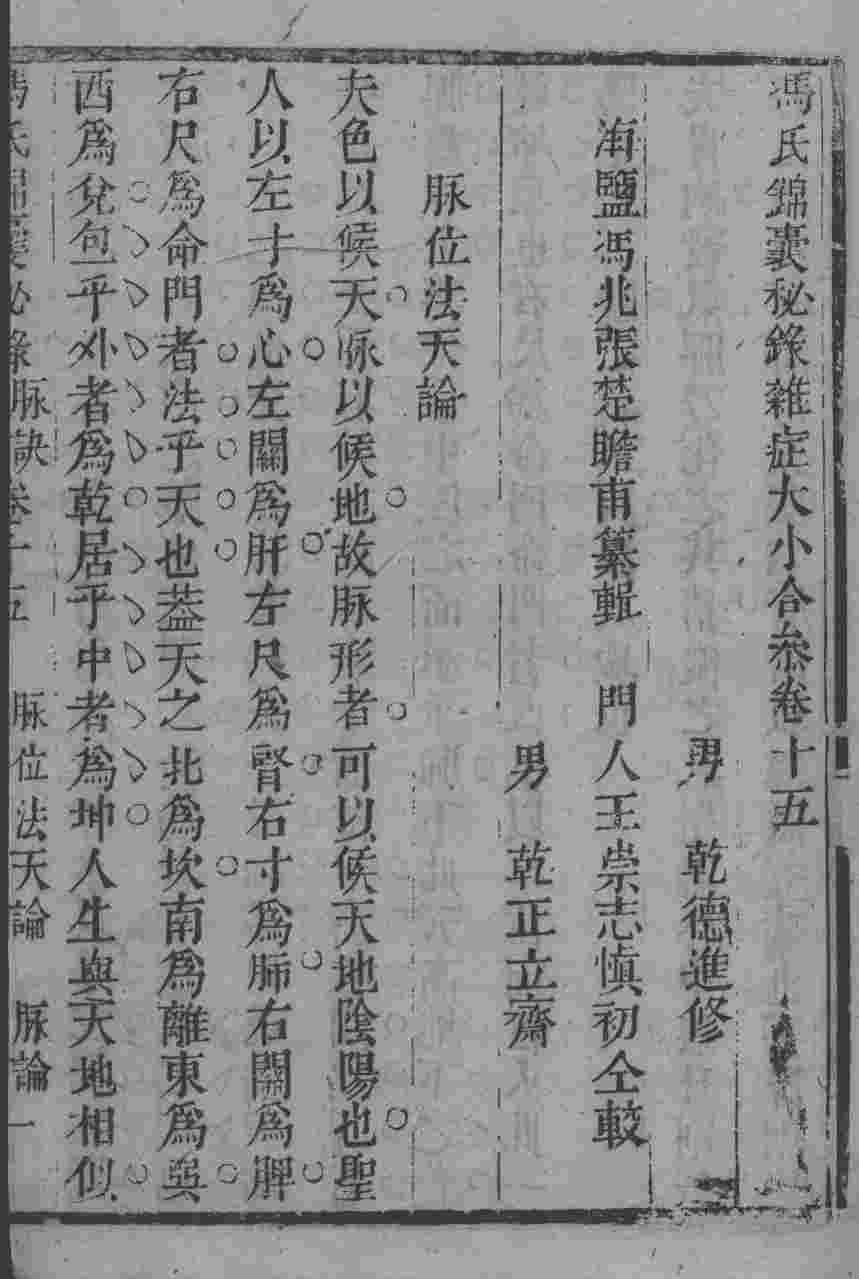 馮氏錦囊秘錄雜症大小合叅卷十五
男 乾德進修
海鹽馮兆張楚瞻甫纂輯 門人王崇志慎初仝較
男 乾正立齋
脉位法天論
夫色以候天脉以候地故脉形者可以候天地陰陽也聖
人以左寸爲心左關爲肝左尺爲腎右寸爲肺右關爲脾
右尺爲命門者法乎天也葢天之北爲坎南爲離東爲巽
西爲兌包乎外者爲乾居乎中者爲坤人生與天地相似
馮氏錦囊秘錄脉訣卷十五 脉位法天論 脉論一